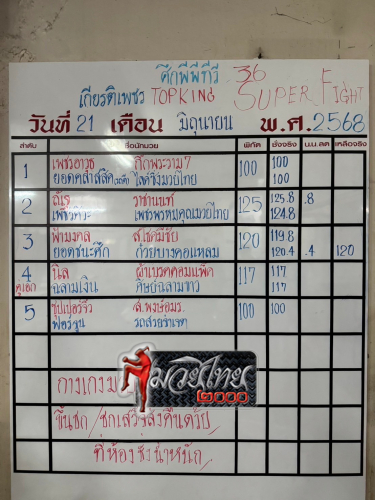 ศึกพีพีทีวี 36
เกียรติเพชร TOPKING SUPER FIGHT
วันที่ 21 เดือน มิถุนายน พ.ศ. 2568
ลำดับ ชื่อนักมวย พิกัด ชั่งจริง น.น.ลด เหลือจริง
1 เพชรอาวุธ ศักพระราม7 100 100
ยอดคลาสสิค ไลค์จิงมวยไทย 100
2 วาซานนท์ 125 125.8 .8
เพชรพรหมคุณมวยไทย 124.8
3 ฟ้ามงคล ส.โชคมีชัย 120 119.8
ยอดชนะศึก ก๋วยบางคอแหลม 120.4 .4 120
4 นิล ผ้าเบรคคอมแพ็ค 117 117
คู่เอก ฉลามเงิน ศิษย์ฉลามขาว 117
5 ซุปเปอร์จิ๋ว ส.พงษ์อมร 100 100
ฟอร์จูน
กางเกงม
มวยไทย
๒๐๐๐
ขึ้นชก/ชกเสร็จส่งคืนด้วย
ที่ห้องชั่งน้ำหนัก